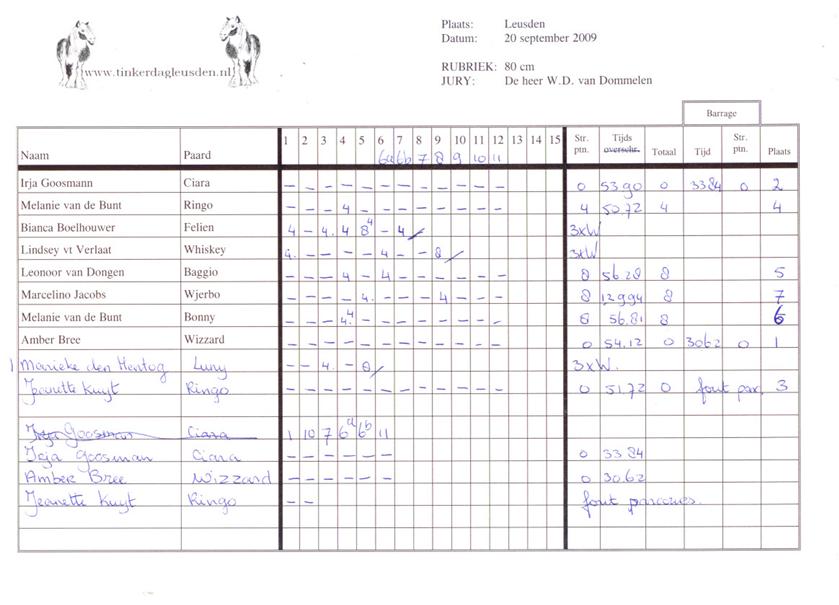 Plaats: Leusden
Datum: 20 september 2009
www.tinkerdagleusden.nl
RUBRIEK: 80 cm
JURY: De heer W.D. van Dommelen
Barrage
Naam Paard 1 2 3 4 5 6 7 8 9 10 11 12 13 14 15 Str. ptn. Tijds overschr. Totaal Tijd Str. ptn. Plaats
6a 6b 7 8 9 10 11
Irja Goosmann Ciara – – – – – – – – – – – – – 0 53.90 0 33.84 0 2
Melanie van de Bunt Ringo – – – 4 – – – – – – – – – 4 50.72 4 4
Bianca Boelhouwer Felien 4 – 4. 4 8 4 – 4 / 3xW
Lindsey vt Verlaat Whiskey 4. – – – – 4 – – 8 / 3xW
Leonoor van Dongen Baggio – – – 4 – 4 – – – – – – – 8 56.28 8 5
Marcelino Jacobs Wjerbo – – – – 4. – – – 4 – – – – 8 129.94 8 7
Melanie van de Bunt Bonny – – – 4. 4 – – – – – – – – 8 56.81 8 6
Amber Bree Wizzard – – – – – – – – – – – – – 0 54.12 0 30.62 0 1
1 Marieke den Hertog Luny – – 4. – 8 / 3xW.
Jeanette Kuyt Ringo – – – – – – – – – – – – – 0 51.72 0 fout par. 3
Irja Goosman Ciara 1 10 7 6a 6b 11
Irja Goosman Ciara – – – – – – 0 33.84
Amber Bree Wizzard – – – – – – 0 30.62
Jeanette Kuyt Ringo – – fout parcours.